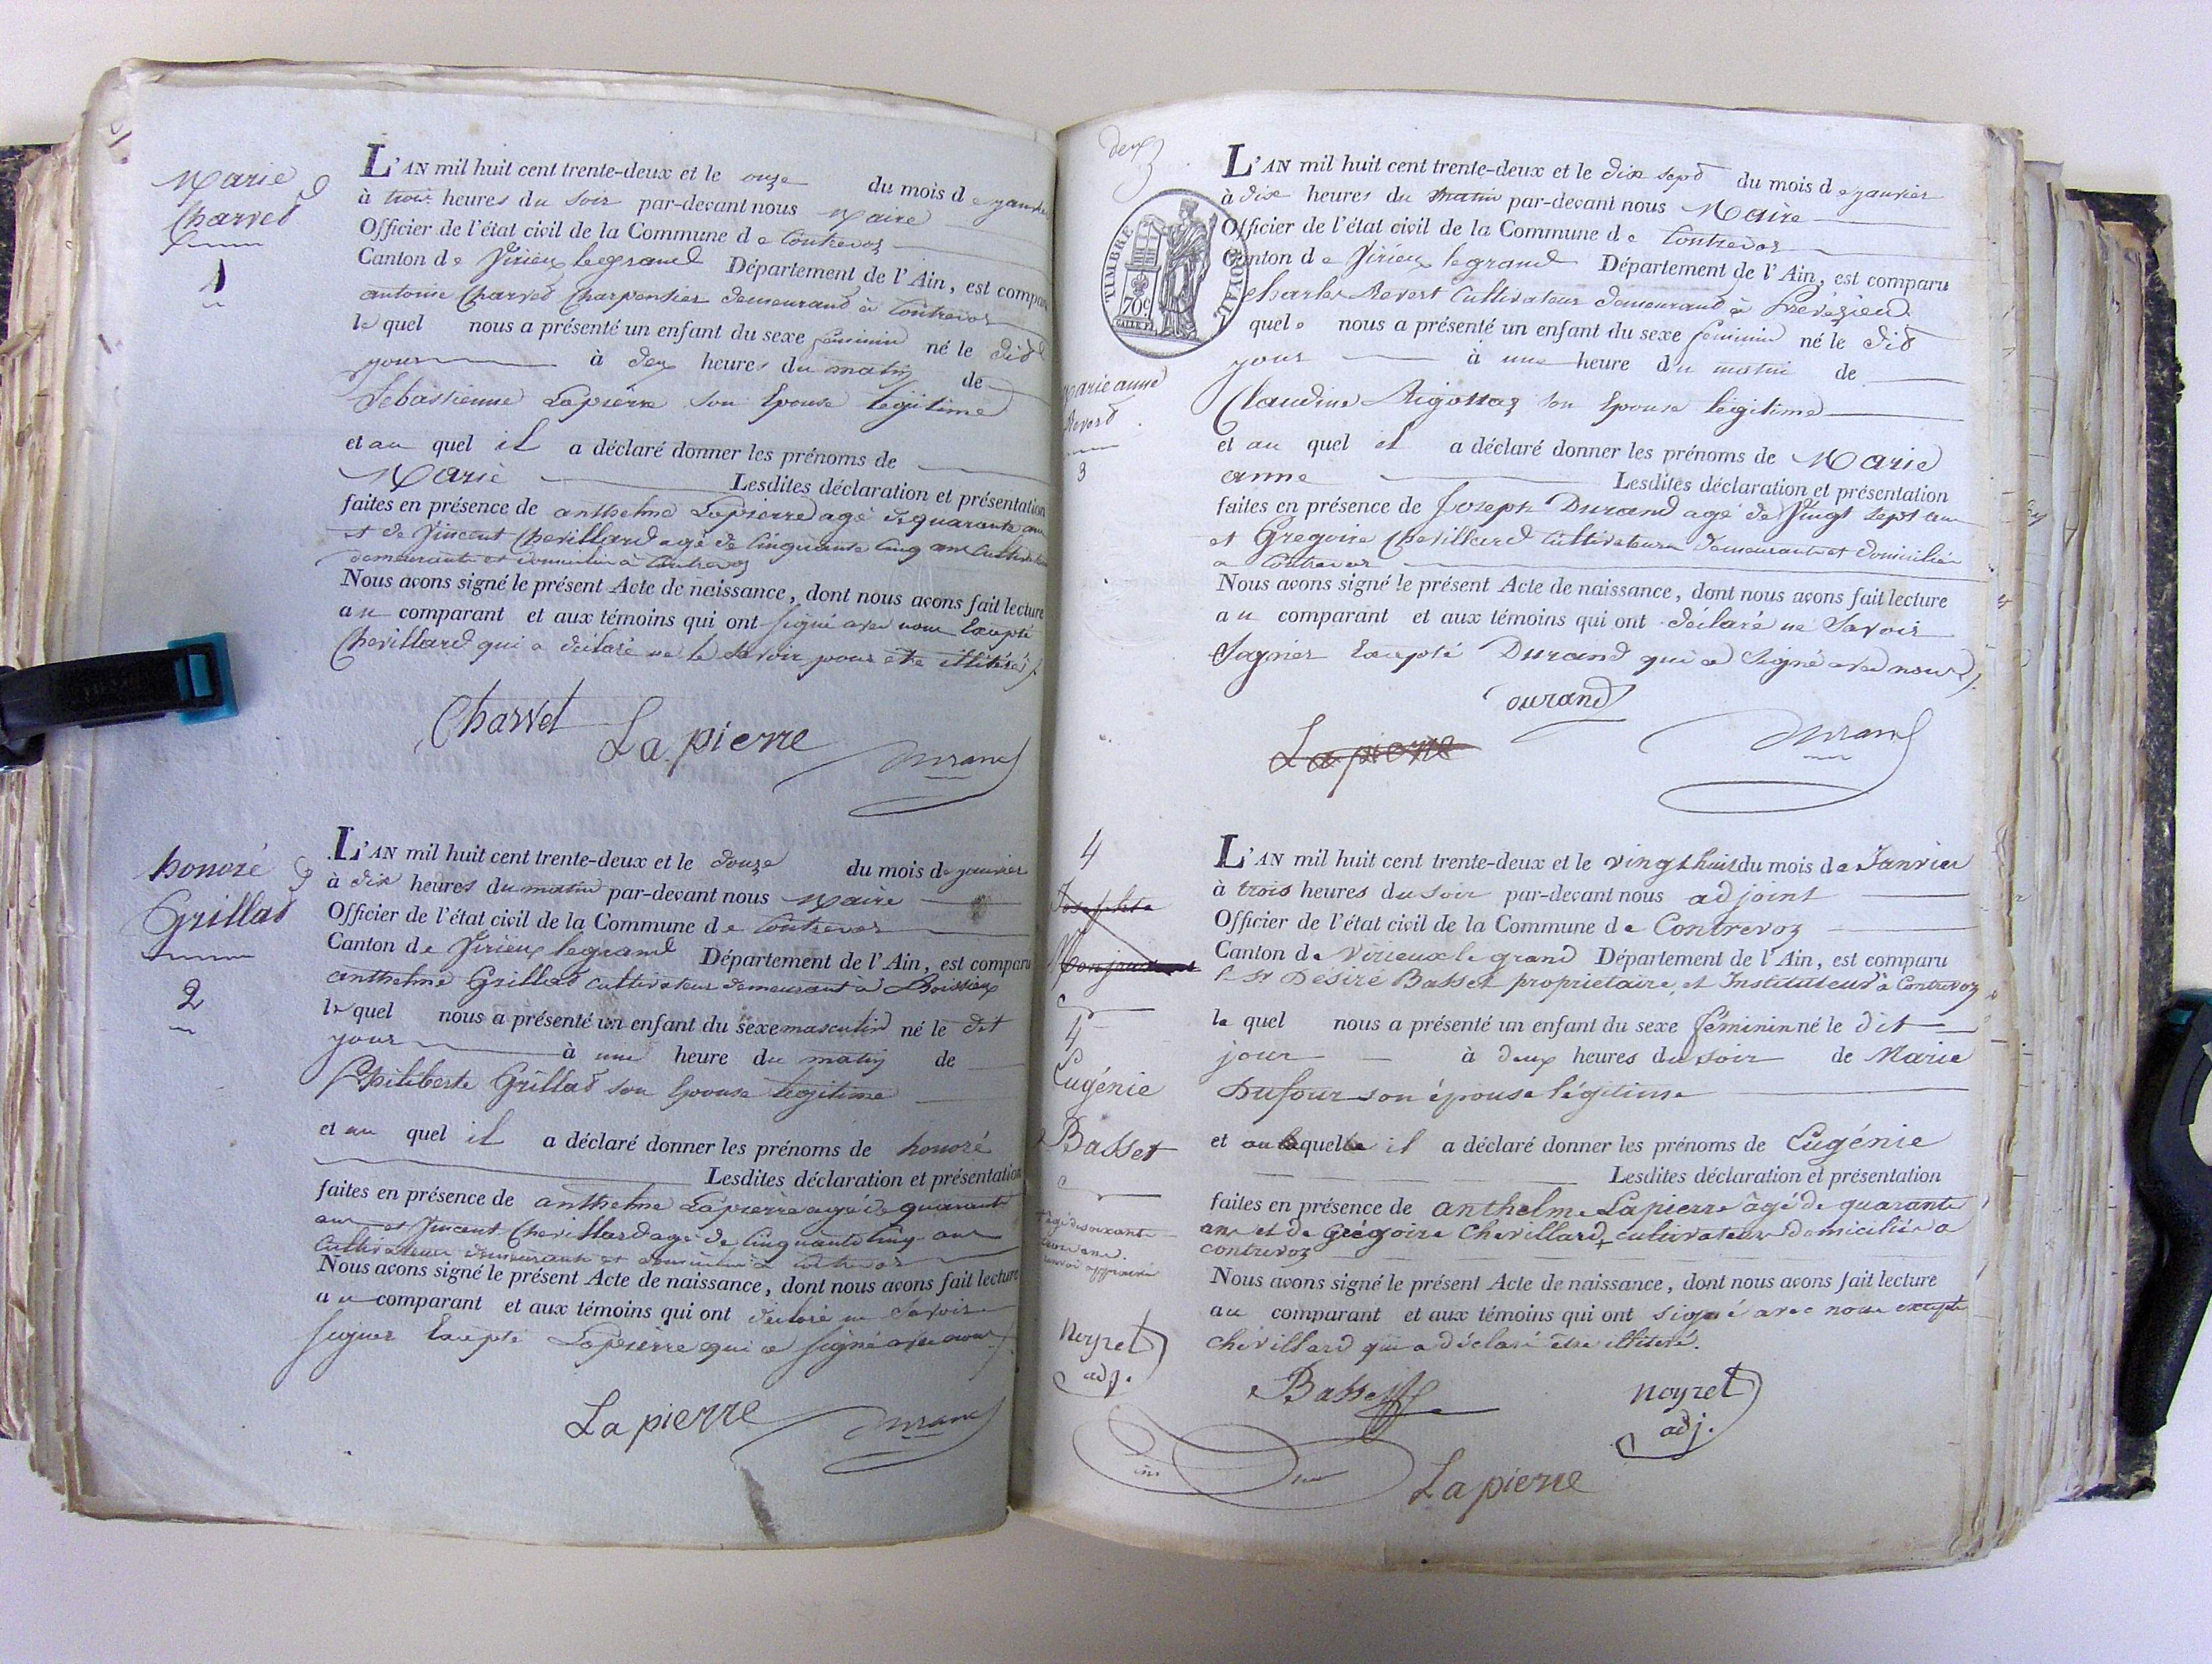 Marie
Charvet
1
L'AN mil huit cent trente-deux et le onze du mois de janvier
à trois heures du soir par-devant nous Maire
Officier de l'état civil de la Commune de Contrevoz
Canton de Virieux legrand Département de l'Ain, est comparu
antoine Charvet Charpentier demeurant à Contrevoz
le quel nous a présenté un enfant du sexe feminin né le dit
jour à deux heures du matin de
Sebastienne Lapierre son Epouse legitime
et au quel il a déclaré donner les prénoms de
Marie Lesdites déclaration et présentation
faites en présence de anthelme Lapierre agé de quarante ans
et de Vincent Chevillard agé de Cinquante Cinq ans Cultivateurs
demeurants et domiciliés à Contrevoz
Nous avons signé le présent Acte de naissance, dont nous avons fait lecture
au comparant et aux témoins qui ont signé avec nous Excepté
Chevillard qui a déclaré ne le savoir pour etre illitéré
Charvet Lapierre Durand
honoré
Grillat
2
L'AN mil huit cent trente-deux et le douze du mois de janvier
à dix heures du matin par-devant nous Maire
Officier de l'état civil de la Commune de Contrevoz
Canton de Virieux legrand Département de l'Ain, est comparu
anthelme Grillat cultivateur demeurant à Boissieux
le quel nous a présenté un enfant du sexe masculin né le dit
jour à une heure du matin de
Philiberte Grillat son Epouse legitime
et au quel il a déclaré donner les prénoms de honoré
Lesdites déclaration et présentation
faites en présence de anthelme Lapierre agé de quarante
ans et Vincent Chevillard agé de Cinquante Cinq ans
Cultivateurs demeurants et domiciliés à Contrevoz
Nous avons signé le présent Acte de naissance, dont nous avons fait lecture
au comparant et aux témoins qui ont déclaré ne Savoir
signer Excepté Lapierre qui a signé avec nous
Lapierre Durand
deux
TIMBRE ROYAL
70c.
Marie anne
Revert
3
L'AN mil huit cent trente-deux et le dix sept du mois de janvier
à dix heures du matin par-devant nous Maire
Officier de l'état civil de la Commune de Contrevoz
Canton de Virieux legrand Département de l'Ain, est comparu
Charles Revert Cultivateur demeurant à Prevezieu
quel nous a présenté un enfant du sexe feminin né le dit
jour à une heure du matin de
Claudine Rigottaz son Epouse légitime
et au quel il a déclaré donner les prénoms de Marie
anne Lesdites déclaration et présentation
faites en présence de Joseph Durand agé de Vingt sept ans
et Gregoire Chevillard Cultivateurs demeurants et domiciliés
a Contrevoz
Nous avons signé le présent Acte de naissance, dont nous avons fait lecture
au comparant et aux témoins qui ont déclaré ne Savoir
Sagner Excepté Durand qui a Signé avec nous
Durand
Lapierre Durand
4
Josephte
4
Eugénie
Basset
agé de soixante
ans.
renvoi approuvé
Noyret
adj.
L'AN mil huit cent trente-deux et le vingt huit du mois de Janvier
à trois heures du soir par-devant nous adjoint
Officier de l'état civil de la Commune de Contrevoz
Canton de Virieux le grand Département de l'Ain, est comparu
le Sr Désiré Basset propriétaire, et Instituteur à Contrevoz
le quel nous a présenté un enfant du sexe féminin né le dit
jour à deux heures du soir de Marie
Dufour son épouse légitime
et au laquelle il a déclaré donner les prénoms de Eugénie
Lesdites déclaration et présentation
faites en présence de anthelme Lapierre âgé de quarante
ans et de Grégoire Chevillard, cultivateurs domiciliés a
contrevoz
Nous avons signé le présent Acte de naissance, dont nous avons fait lecture
au comparant et aux témoins qui ont signé avec nous excepté
chevillard qui a déclaré être illitéré.
Basset Noyret
adj.
Lapierre